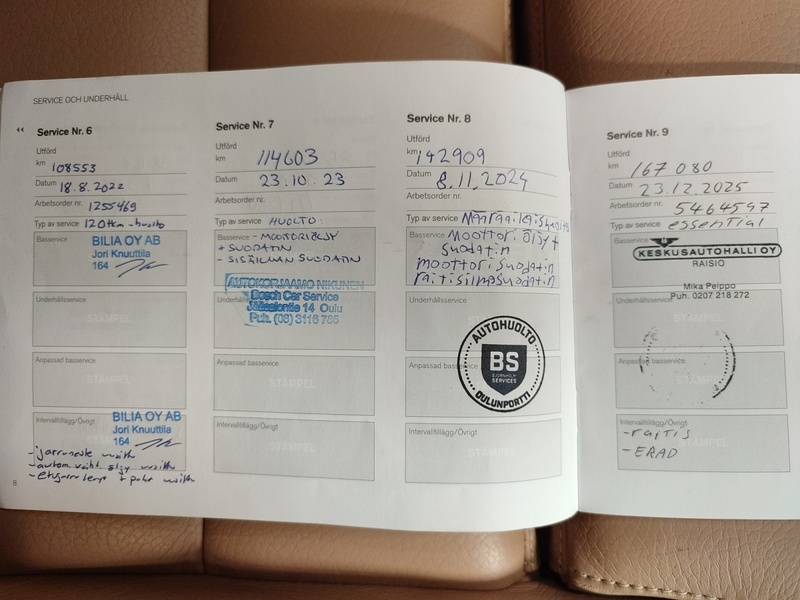 SERVICE OCH UNDERHÅLL
Service Nr. 6
Utförd
km 108553
Datum 18.8.2022
Arbetsorder nr. 1255469
Typ av service 120tkm-huolto
Basservice
BILIA OY AB
Jori Knuuttila
164
Underhållsservice
STÄMPEL
Anpassad basservice
STÄMPEL
Intervalltillägg/Övrigt
BILIA OY AB
Jori Knuuttila
164
-jarruneste vaiht
-autom vaiht öljy vaiht
- + vaiht
8
Service Nr. 7
Utförd
km 114603
Datum 23.10.23
Arbetsorder nr.
Typ av service HUOLTO:
Basservice - MOOTTORIÖLJY
+ SUODATIN
- SISÄILMAN SUODATIN
AUTOKORJAAMO NIKUNEN
Bosch Car Service
Jääsalontie 14 Oulu
Puh. (08) 3116 785
Underhållsservice
STÄMPEL
Anpassad basservice
STÄMPEL
Intervalltillägg/Övrigt
STÄMPEL
Service Nr. 8
Utförd
km 142909
Datum 8.11.2024
Arbetsorder nr.
Typ av service Määräaikaishuolto
Basservice Moottori öljy +
Suodatin
moottorisuodatin
raitisilmasuodatin
Underhållsservice
AUTOHUOLTO
BS
BJÖRNHOLM
SERVICES
OULUNPORTTI
Anpassad basservice
Intervalltillägg/Övrigt
STÄMPEL
Service Nr. 9
Utförd
km 167 080
Datum 23.12.2025
Arbetsorder nr. 5464597
Typ av service essential
Basservice
KESKUSAUTOHALLI OY
RAISIO
Mika Peippo
Puh. 0207 218 272
Underhållsservice
STÄMPEL
Anpassad basservice
STÄMPEL
Intervalltillägg/Övrigt
STÄMPEL
-raitis
-ERAD